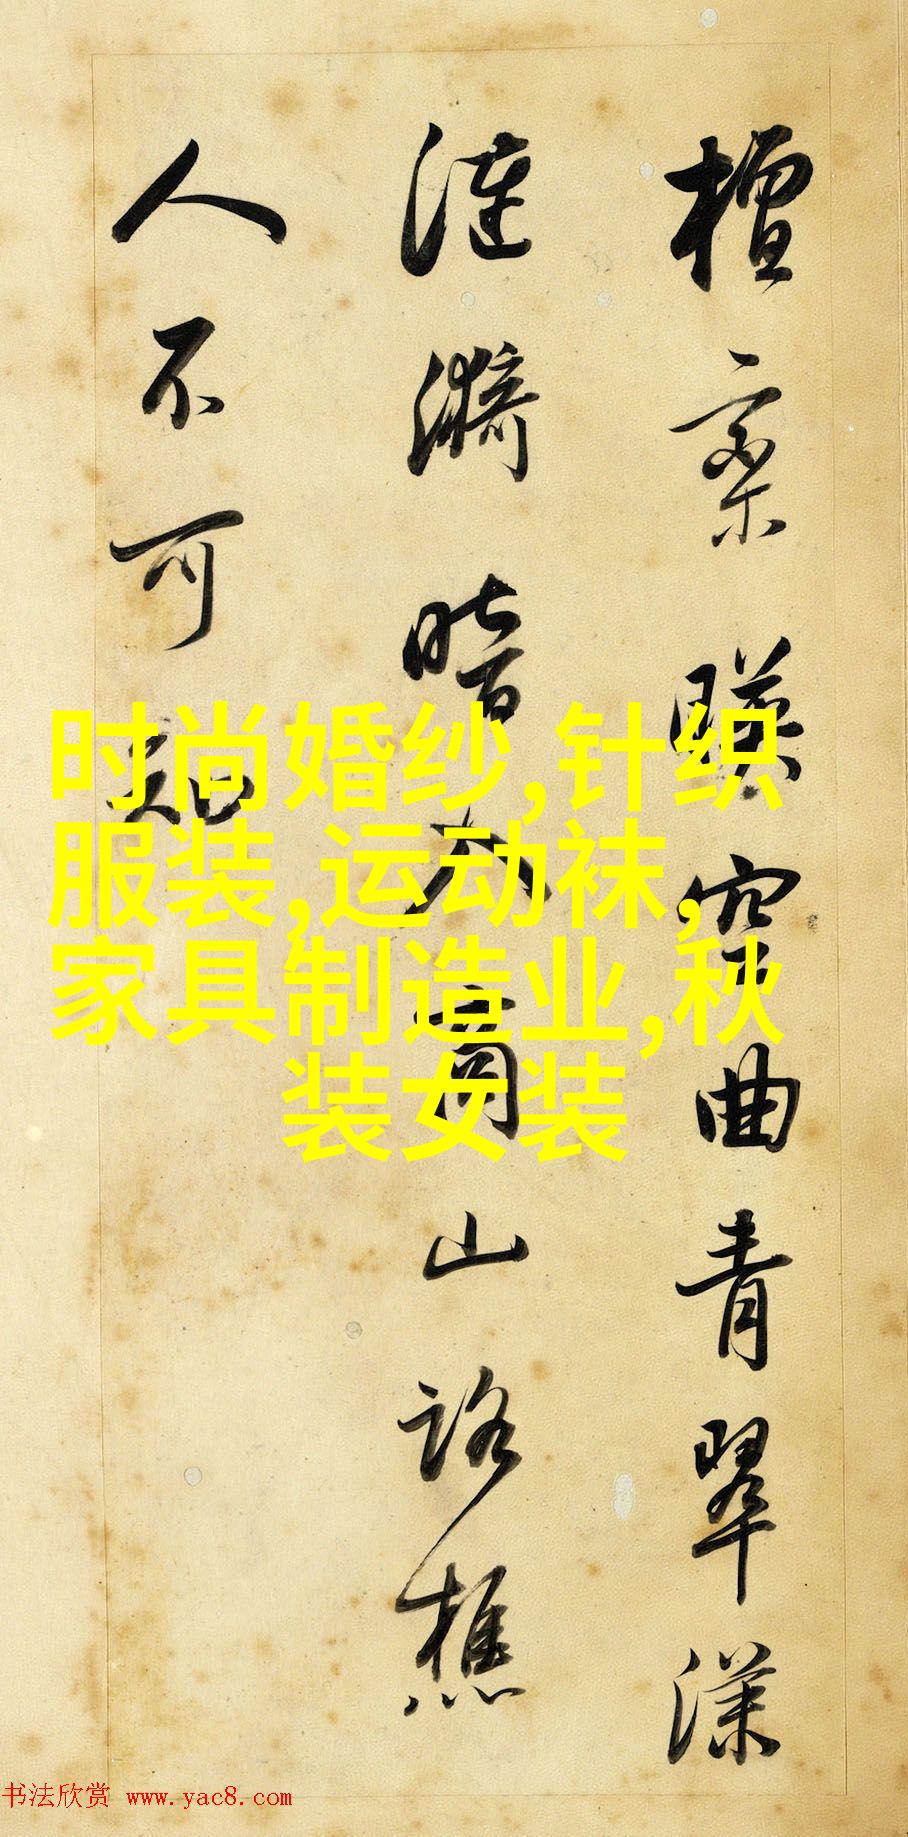 檀栾暎空曲青翠漾
漣漪暗入商山路樵
人不可知
时尚婚纱,针织
服装,运动袜,
家具制造业,秋
装女装
书法欣赏 www.yac8.com